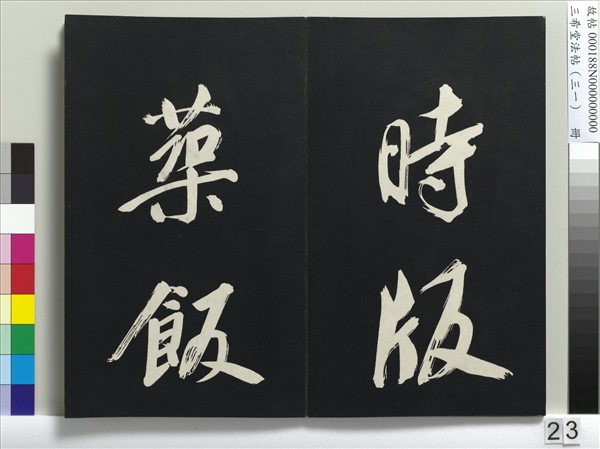 故帖 000188N000000000
三希堂法帖（三一） 冊
時版
築飯
23